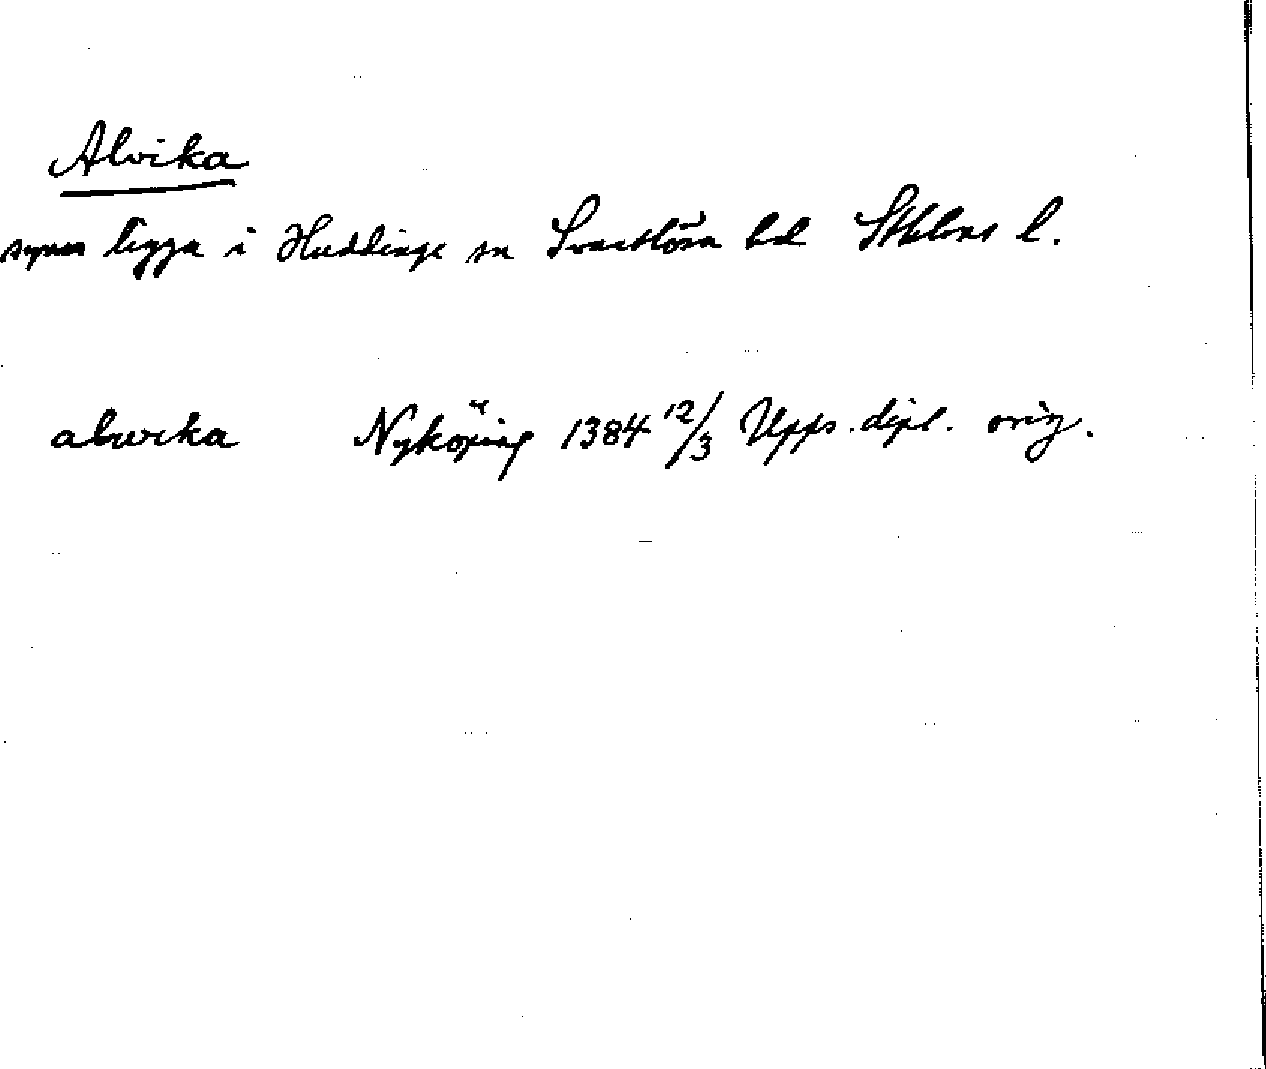 Alvika
synes ligga i Huddinge sn Svartlösa hd Sthlms l.
alwika Nyköping 1384 12/3 Upps. dipl. orig.